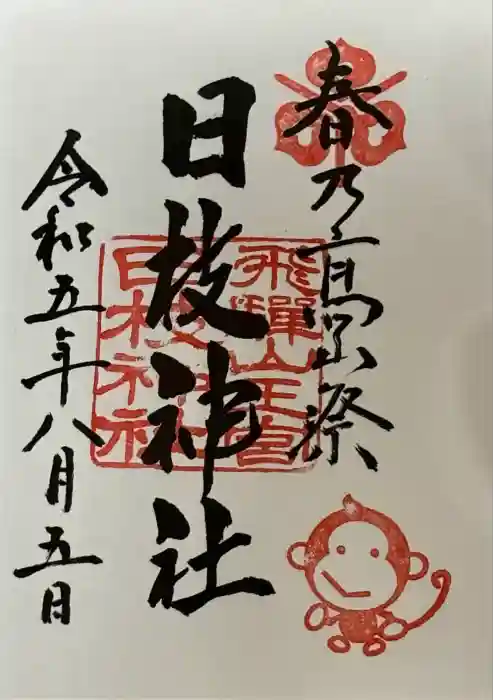 春乃高山祭
日枝神社
飛騨山王宮
日枝神社
令和五年八月五日